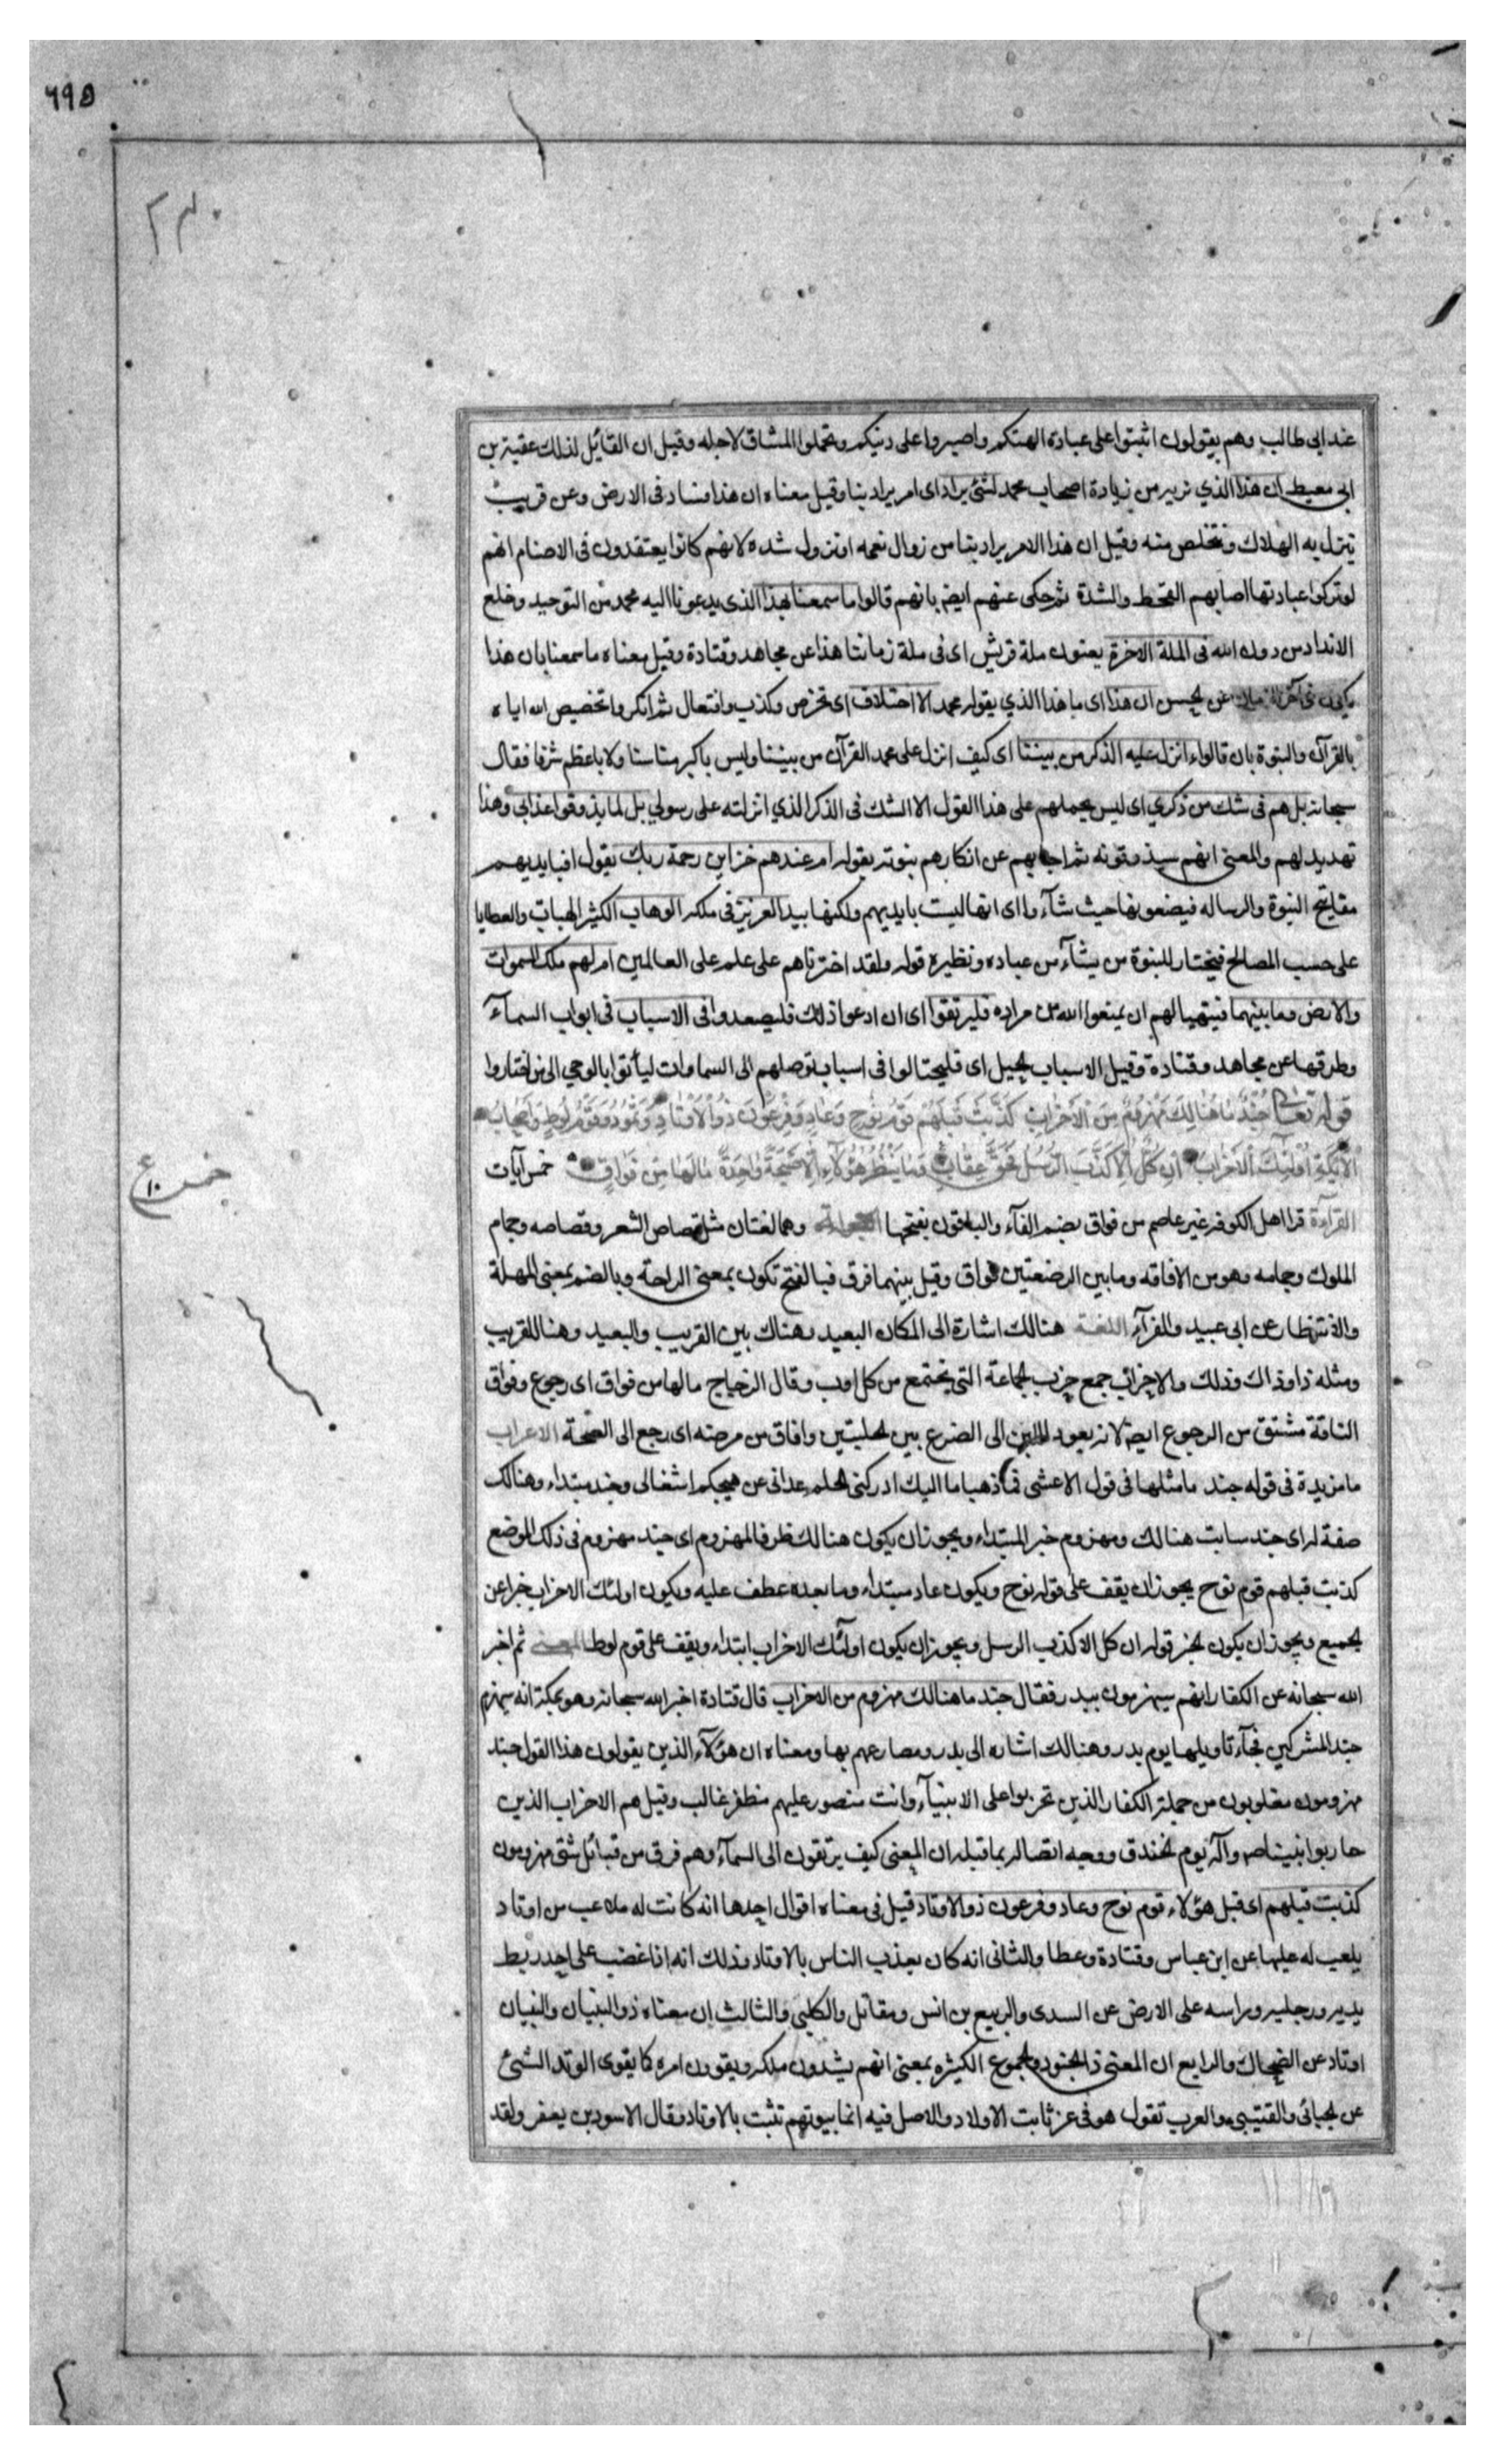 ٦٩٥
عند ابى طالب وهم يقولون اثبتوا على عبادة الهتكم واصبروا على دينكم وتحملوا المشاق لاجله وقيل ان القائل لذلك عقبة بن
ابى معيط ان هذا الذي نريه من زيادة اصحاب محمد لشئ يراد اى امر يراد بنا وقيل معناه ان هذا فساد فى الارض وعن قريب
ينزل به الهلاك ونتخلص منه وقيل ان هذا الامر يراد بنا من زوال نعمه او نزول شده لانهم كانوا يعتقدون فى الاصنام انهم
لو تركوا عبادتها اصابهم القحط والشدة ثم حكى عنهم ايضا بانهم قالوا ما سمعنا بهذا الذى يدعونا اليه محمد من التوحيد وخلع
الانداد من دون الله فى الملة الاخرة يعنون ملة قريش اى فى ملة زماننا هذا عن مجاهد وقتادة وقيل معناه ما سمعنا بان هذا
يكون فى آخر الزمان عن الحسن ان هذا اى ما هذا الذي يقوله محمد الا اختلاق اى تخرص وكذب وافتعال ثم انكروا تخصيص الله اياه
بالقرآن والنبوة بان قالوا ءانزل عليه الذكر من بيننا اى كيف انزل على محمد القرآن من بيننا وليس باكبر منا سنا ولا باعظم شرفا فقال
سبحانه بل هم فى شك من ذكري اى ليس يحملهم على هذا القول الا الشك فى الذكر الذي انزلته على رسولي بل لما يذوقوا عذابي وهذا
تهديد لهم والمعنى انهم سيذوقونه ثم اجابهم عن انكارهم نبوته بقوله ام عندهم خزاين رحمة ربك يقول افبايديهم
مفاتيح النبوة والرساله فيضعونها حيث شآءوا اى انها ليست بايديهم ولكنها بيد العزيز فى ملكه الوهاب الكثير الهبات والعطايا
على حسب المصالح فيختار للنبوة من يشآء من عباده ونظيره قوله ولقد اخترناهم على علم على العالمين ام لهم ملك السموات
والارض وما بينهما فيتهيا لهم ان يمنعوا الله من مراده فليرتقوا اى ان ادعوا ذلك فليصعدوا فى الاسباب فى ابواب السمآء
وطرقها عن مجاهد وقتادة وقيل الاسباب الحيل اى فليحتالوا فى اسباب توصلهم الى السماوات ليأتوا بالوحي الى من اختاروا
قوله تعالى جُنْدٌ مَا هُنَالِكَ مَهْزُومٌ مِنَ الْأَحْزَابِ كَذَّبَتْ قَبْلَهُمْ قَوْمُ نُوحٍ وَعَادٌ وَفِرْعَوْنُ ذُو الْأَوْتَادِ وَثَمُودُ وَقَوْمُ لُوطٍ وَأَصْحَابُ
الْأَيْكَةِ أُولَٰئِكَ الْأَحْزَابُ إِنْ كُلٌّ إِلَّا كَذَّبَ الرُّسُلَ فَحَقَّ عِقَابِ وَمَا يَنْظُرُ هَٰؤُلَآءِ إِلَّا صَيْحَةً وَاحِدَةً مَا لَهَا مِنْ فَوَاقٍ خمس آيات
القرآءة قرا اهل الكوفه غير عاصم من فواق بضم الفآء والباقون بفتحها وهما لغتان مثل قصاص الشعر وقصاصه وجمام
الملوك وجمامه وهو من الافاقه وما بين الرضعتين فواق وقيل بينهما فرق فبالفتح تكون بمعنى الراحة وبالضم بمعنى المهلة
والانتظار عن ابى عبيد والفرآء اللغة هنالك اشارة الى المكان البعيد وهناك بين القريب والبعيد وهنا للقريب
ومثله ذا وذاك وذلك والاحزاب جمع حزب الجماعة التى تجتمع من كل اوب وقال الزجاج ما لها من فواق اى رجوع وفواق
الناقة مشتق من الرجوع ايضا لانه يعود اللبن الى الضرع بين الحلبتين وافاق من مرضه اى رجع الى الصحة الاعراب
ما مزيدة فى قوله جند ما مثلها فى قول الاعشى فاذهبا ما اليك ادركنى الحلم عدانى عن هيجكم اشغالى وجند مبتداء وهنالك
صفة له اى جند ثابت هنالك ومهزوم خبر المبتداء ويجوز ان يكون هنالك ظرفا لمهزوم اى جند مهزوم فى ذلك الموضع
كذبت قبلهم قوم نوح يجوز ان يقف على قوله نوح ويكون عاد مبتداء وما بعده عطف عليه ويكون اولئك الاحزاب خبرا عن
الجميع ويجوز ان يكون الخبر قوله ان كل الا كذب الرسل ويجوز ان يكون اولئك الاحزاب ابتداء ويقف على قوم لوط المعنى ثم اخبر
الله سبحانه عن الكفار انهم سيهزمون ببدر فقال جند ما هنالك مهزوم من الاحزاب قال قتادة اخبر الله سبحانه وهو بمكة انه سيهزم
جند المشركين فجآء تاويلها يوم بدر وهنالك اشاره الى بدر ومصارعهم بها ومعناه ان هؤلآء الذين يقولون هذا القول جند
مهزومون مغلوبون من جملة الكفار الذين تحزبوا على الانبيآء وانت منصور عليهم مظفر غالب وقيل هم الاحزاب الذين
حاربوا نبينا ص وآله يوم الخندق ووجه اتصاله بما قبله ان المعنى كيف يرتقون الى السمآء وهم فرق من قبائل شتى مهزومون
كذبت قبلهم اى قبل هؤلاء قوم نوح وعاد وفرعون ذو الاوتاد قيل فى معناه اقوال احدها انه كانت له ملاعب من اوتاد
يلعب له عليها عن ابن عباس وقتادة وعطا والثانى انه كان يعذب الناس بالاوتاد وذلك انه اذا غضب على احد ربط
يديه ورجليه وراسه على الارض عن السدى والربيع بن انس ومقاتل والكلبي والثالث ان معناه ذو البنيان والبنيان
اوتاد عن الضحاك والرابع ان المعنى ذو الجنود والجموع الكثيره بمعنى انهم يشدون ملكه ويقوون امره كما يقوى الوتد الشئ
عن الجبائى والقتيبى والعرب تقول هو فى عز ثابت الاوتاد والاصل فيه انما بيوتهم تثبت بالاوتاد وقال الاسود بن يعفر ولقد
خمس ١٠ ع